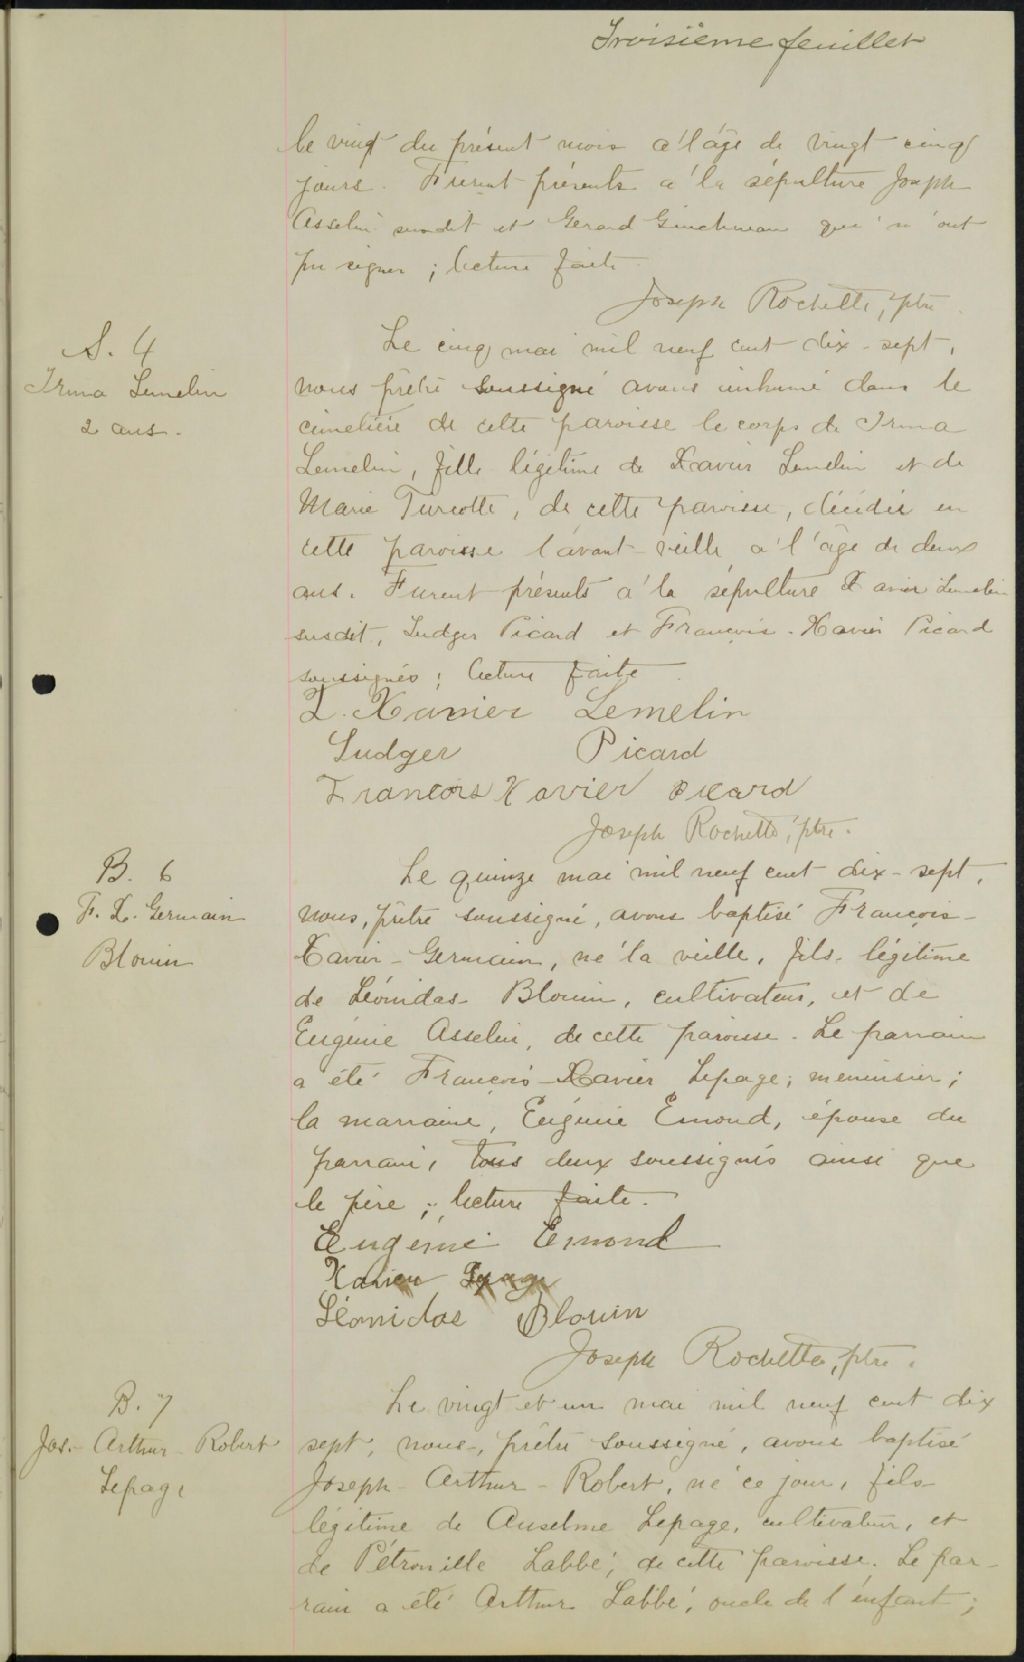 Troisième feuillet
le vingt du présent mois à l'âge de vingt cinq
jours. Furent présents à la sépulture Joseph
Asselin susdit et Gérard qui n'ont
pu signer ; lecture faite
Joseph Rochette, ptre.
S. 4
Irma Lemelin
2 ans.
Le cinq mai mil neuf cent dix-sept,
nous prêtre soussigné avons inhumé dans le
cimetière de cette paroisse le corps de Irma
Lemelin, fille légitime de Xavier Lemelin et de
Marie Turcotte, de cette paroisse, décédée en
cette paroisse l'avant-veille à l'âge de deux
ans. Furent présents à la sépulture Xavier Lemelin
susdit, Ludger Picard et François-Xavier Picard
soussignés ; lecture faite
F. Xavier Lemelin
Ludger Picard
Francois Xavier Picard
Joseph Rochette, ptre.
B. 6
F. X. Germain
Blouin
Le quinze mai mil neuf cent dix-sept,
nous, prêtre soussigné, avons baptisé François-
Xavier-Germain, né la veille, fils légitime
de Léonidas Blouin, cultivateur, et de
Eugénie Asselin, de cette paroisse. Le parrain
a été François-Xavier Lepage, menuisier ;
la marraine, Eugénie Émond, épouse du
parrain, tous deux soussignés ainsi que
le père ; lecture faite.
Eugénie Emond
Xavier Lepage
Léonidas Blouin
Joseph Rochette, ptre.
B. 7
Jos.-Arthur-Robert
Lepage
Le vingt et un mai mil neuf cent dix
sept, nous, prêtre soussigné, avons baptisé
Joseph-Arthur-Robert, né ce jour, fils
légitime de Anselme Lepage, cultivateur, et
de Pétronille Labbé, de cette paroisse. Le par-
rain a été Arthur Labbé, oncle de l'enfant ;